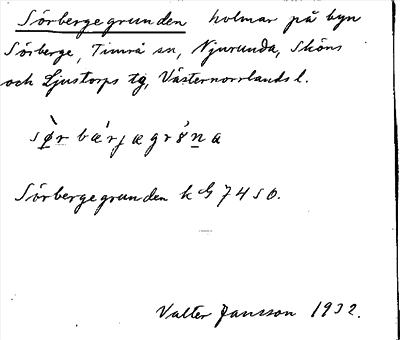 Sörbergegrunden holmar på byn
Sörberge, Timrå sn, Njurunda, Sköns
och Ljustorps tg, Västernorrlands l.
sø̀r bæŕjægrŏ́na
Sörbergegrunden k G 74 SO.
Valter Jansson 1932.